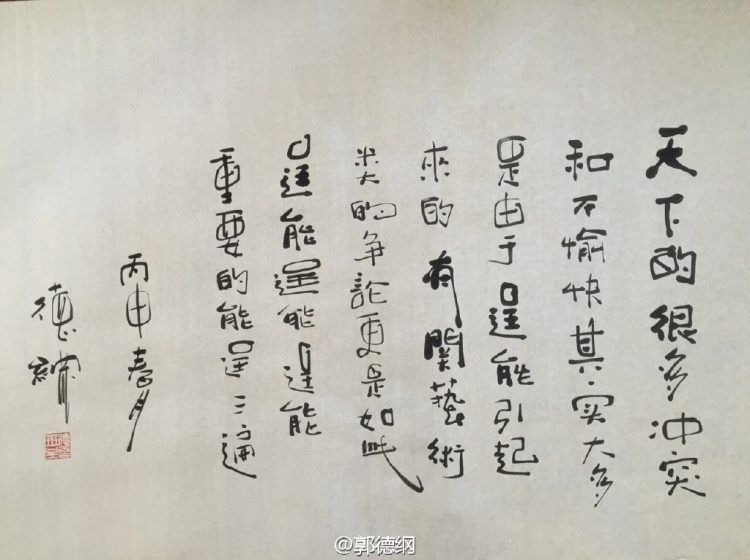 天下的很多冲突
和不愉快其实大多
是由于逞能引起
來的有關藝術
类的争論更是如此
逞能逞能逞能
重要的能逞三遍
丙申月
德綱
@郭德纲